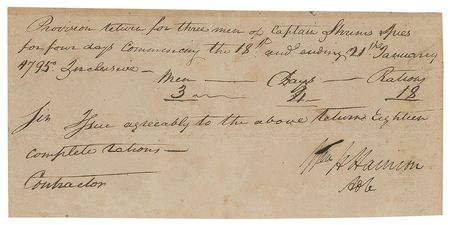 Provision return for three men of Captain Shrims Spies
for four days commencing the 18th and ending 21st January
1795 Inclusive —
Men — Days — Rations
3 — 18
Sir Issue agreeably to the above return Eighteen
complete rations —
Wm H Harrison
Contractor
AdC